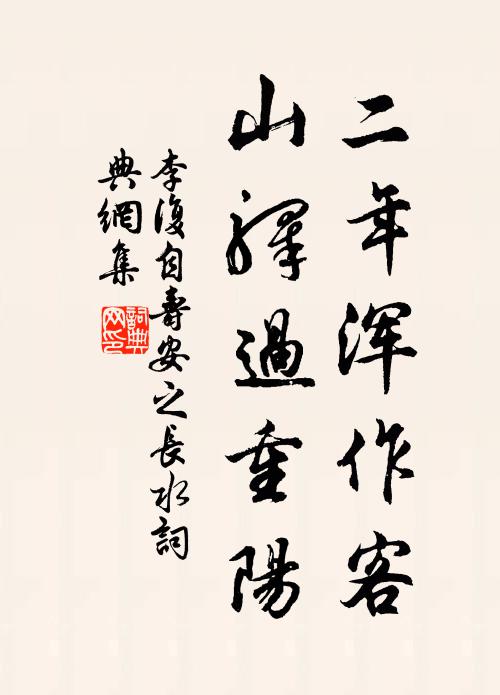 二年浑作客
山驛過重陽
李復自壽安之長水詞
典網集
詞典网印